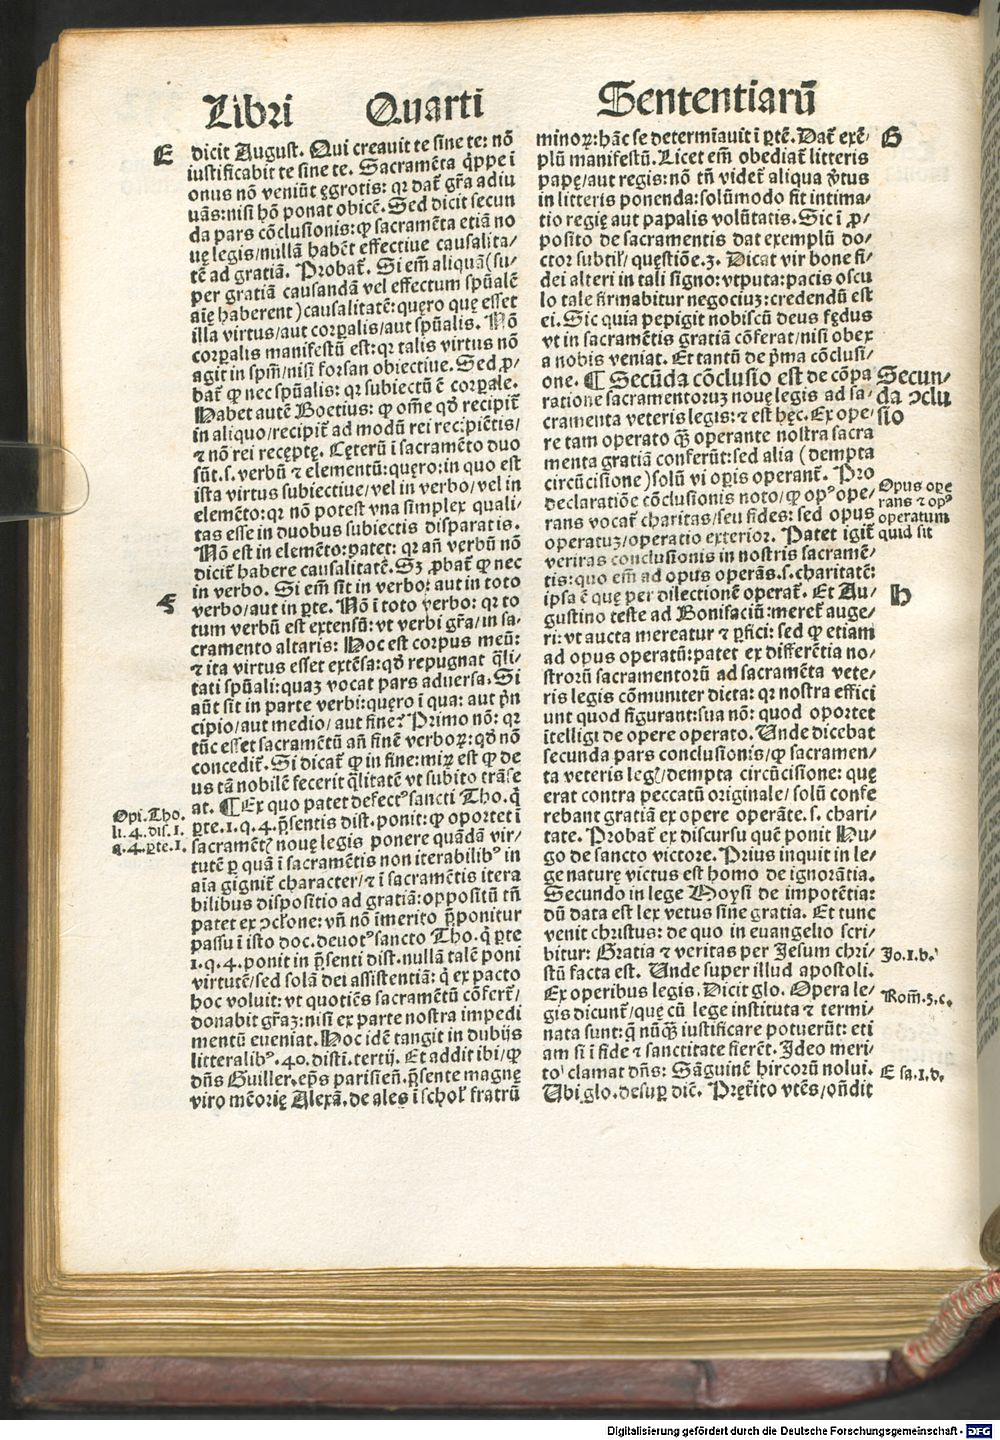 Libri Quarti Sententiarū
E
dicit August. Qui creauit te sine te: nō
iustificabit te sine te. Sacramēta q̄ppe i
onus nō veniūt ęgrotis: qꝛ dat̄ gr̄a adiu
uās: nisi hō ponat obicē. Sed dicit secun
da pars cōclusionis: ꝙ sacramēta etiā no
uę legis/nullā habēt effectiue causalita/
tē ad gratiā. Probat̄. Si em̄ aliquā (su/
per gratiā causandā vel effectum spūalē
aię haberent) causalitatē: quęro quę esset
illa virtus/aut corꝑalis/aut spūalis. Nō
corꝑalis manifestū est: qꝛ talis virtus nō
agit in spm̄/nisi forsan obiectiue. Sed ꝓ/
bat̄ ꝙ nec spūalis: qꝛ subiectū ē corꝑale.
Habet autē Boetius: ꝙ om̄e qḋ recipit̄
in aliquo/recipit̄ ad modū rei recipiētis/
⁊ nō rei recęptę. Cęterū i sacramēto duo
sūt .s. verbū ⁊ elementū: quęro: in quo est
ista virtus subiectiue/vel in verbo/vel in
elemēto: qꝛ nō potest vna simplex quali/
tas esse in duobus subiectis disparatis.
Nō est in elemēto: patet: qꝛ an̄ verbū nō
dicit̄ habere causalitatē. Sꝫ ꝓbat̄ ꝙ nec
in verbo. Si em̄ sit in verbo: aut in toto
F
verbo/aut in ꝑte. Nō i toto verbo: qꝛ to
tum verbū est extensū: vt verbi gr̄a/in sa/
cramento altaris: Hoc est corpus meū:
⁊ ita virtus esset extēsa: qḋ repugnat q̄li/
tati spūali: quaꝫ vocat pars aduersa. Si
aūt sit in parte verbi: quęro i qua: aut p̄n
cipio/aut medio/aut fine? Primo nō: qꝛ
tūc esset sacramētū an̄ finē verboꝝ: qḋ nō
concedit̄. Si dicat̄ ꝙ in fine: miꝝ est ꝙ de
us tā nobilē fecerit q̄litatē vt subito trāse
at. ¶ Ex quo patet defectꝰ sancti Tho. q̄
Opi. Tho.
li. 4. dis. 1.
q. 4. ꝑte. 1.
ꝑte. 1. q. 4. p̄sentis dist. ponit: ꝙ oportet i
sacramētꝭ nouę legis ponere quādā vir/
tutē ꝑ quā i sacramētis non iterabilibꝰ in
aīa gignit̄ character/⁊ i sacramētis itera
bilibus dispositio ad gratiā: oppositū tn̄
patet ex ꝯcl'one: vn̄ nō imerito p̄ponitur
passu i isto doc. deuotꝰ sancto Tho. q̄ ꝑte
1. q. 4. ponit in p̄senti dist. nullā talē poni
virtutē/sed solā dei assistentiā: q̄ ex pacto
hoc voluit: vt quotiēs sacramētū cōfert̄/
donabit gr̄aꝫ: nisi ex parte nostra impedi
mentū eueniat. Hoc idē tangit in dubijs
litteralibꝰ .40. disti. tertij. Et addit ibi/ꝙ
dn̄s Guiller. ep̄s parisien̄. p̄sente magnę
viro mēorię Alexā. de ales i schol' fratrū
minoꝝ: hāc se determīauit i ꝑtē. Dat̄ exē/
G
plū manifestū. Licet em̄ obediat̄ litteris
papę/aut regis: nō tn̄ videt̄ aliqua v̄tus
in litteris ponenda: solūmodo fit intima/
tio regię aut papalis volūtatis. Sic i ꝓ/
posito de sacramentis dat exemplū do/
ctor subtil'/quęstiōe .3. Dicat vir bone fi/
dei alteri in tali signo: vtputa: pacis oscu
lo tale firmabitur negociuꝫ: credendū est
ei. Sic quia pepigit nobiscū deus fędus
vt in sacramētis gratiā cōferat/nisi obex
a nobis veniat. Et tantū de p̄ma cōclusi/
one. ¶ Secūda cōclusio est de cōpa
Secun/
da ꝯclu
sio
ratione sacramentoruꝫ nouę legis ad sa/
cramenta veteris legis: ⁊ est hęc. Ex ope/
re tam operato q̄ꝫ operante nostra sacra
menta gratiā conferūt: sed alia (dempta
circūcisiōe) solū vi oꝑis operant̄. Pro
Opus ope
rans ⁊ opꝰ
operatum
quid sit
declaratiōe cōclusionis noto/ꝙ opꝰ ope/
rans vocat̄ charitas/seu fides: sed opus
operatuꝫ/operatio exterior. Patet igit̄
veritas conclusionis in nostris sacramē/
tis: quo em̄ ad opus operās .s. charitatē:
ipsa ē quę per dilectionē operat̄. Et Au/
H
gustino teste ad Bonifaciū: meret̄ auge/
ri: vt aucta mereatur ⁊ ꝑfici: sed ꝙ etiam
ad opus operatū: patet ex differētia no/
strorū sacramentorū ad sacramēta vete/
ris legis cōmuniter dicta: qꝛ nostra effici
unt quod figurant: sua nō: quod oportet
ītelligi de opere operato. Unde dicebat
secunda pars conclusionis/ꝙ sacramen/
ta veteris legꝭ/dempta circūcisione: quę
erat contra peccatū originale/solū confe
rebant gratiā ex opere operāte .s. chari/
tate. Probat̄ ex discursu quē ponit Hu/
go de sancto victore. Prius inquit in le/
ge naturę victus est homo de ignorātia.
Secundo in lege Moysi de impotētia:
dū data est lex vetus sine gratia. Et tunc
venit christus: de quo in euangelio scri/
bitur: Gratia ⁊ veritas per Jesum chri/
Jo. 1. b.
stū facta est. Unde super illud apostoli.
Ex operibus legis. Dicit glo. Opera le/
Rom̄. 3. c.
gis dicunt̄/quę cū lege instituta ⁊ termi/
nata sunt: q̄ nūq̄ꝫ iustificare potuerūt: eti
am si i fide ⁊ sanctitate fierēt. Ideo meri/
to clamat dn̄s: Sāguinē hircorū nolui.
Esa. 1. d.
Ubi glo. desuꝑ dic̄. Pręt̄ito vtēs/on̄dit
Digitalisierung gefördert durch die Deutsche Forschungsgemeinschaft - DFG